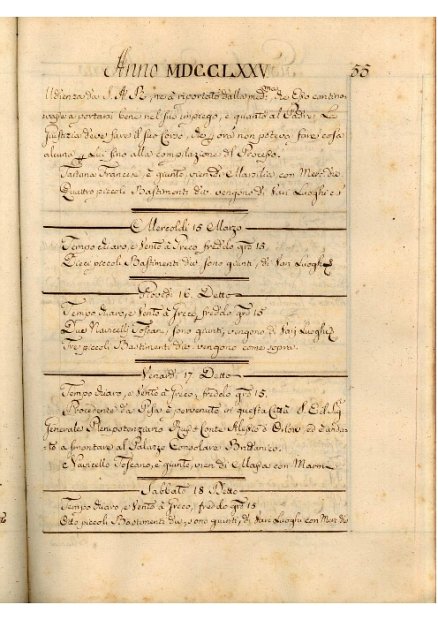 Anno MDCCLXXV. 55
Udienza da S. A. R., ne à riportato dalla med.ma, che Esso continovasse
a portarsi bene nel suo impiego, e quanto al Padre, La
Giustizia deve fare il suo Corso, che ora non poteva fare cosa
alcuna p Lui fino alla compilazione del Processo.
Tartana Francese, è giunta, vien di Marsilia con Merc.
Quattro piccoli Bastimenti dio vengono di Vari Luoghi
Mercoldì 15 Marzo
Tempo chiaro, e Vento à Greco, freddo grã 15.
Dieci piccoli Bastimenti dio sono giunti, di Vari Luoghi
Giovedì 16. Detto
Tempo chiaro, e Vento à Greco, freddo grã 15
Due Navicelli Toscani, sono giunti, vengono di Vari Luoghi
Tre piccoli Bastimenti dio vengono come sopra.
Venardì 17. Detto
Tempo chiaro, e Vento à Greco, freddo grã 15.
Procedente da Pisa è pervenuto in questa Città S. E. il Sig.
Generale Plenipotenziario Russo Conte Alessio d'Orlow, ed è andato
à smontare al Palazzo Consolare Brittanico.
Navicello Toscano, è giunto, vien di Massa con Marmi
Sabbato 18 Detto
Tempo chiaro, e Vento à Greco, freddo grã 15
Otto piccoli Bastimenti dio, sono giunti, di Vari Luoghi con